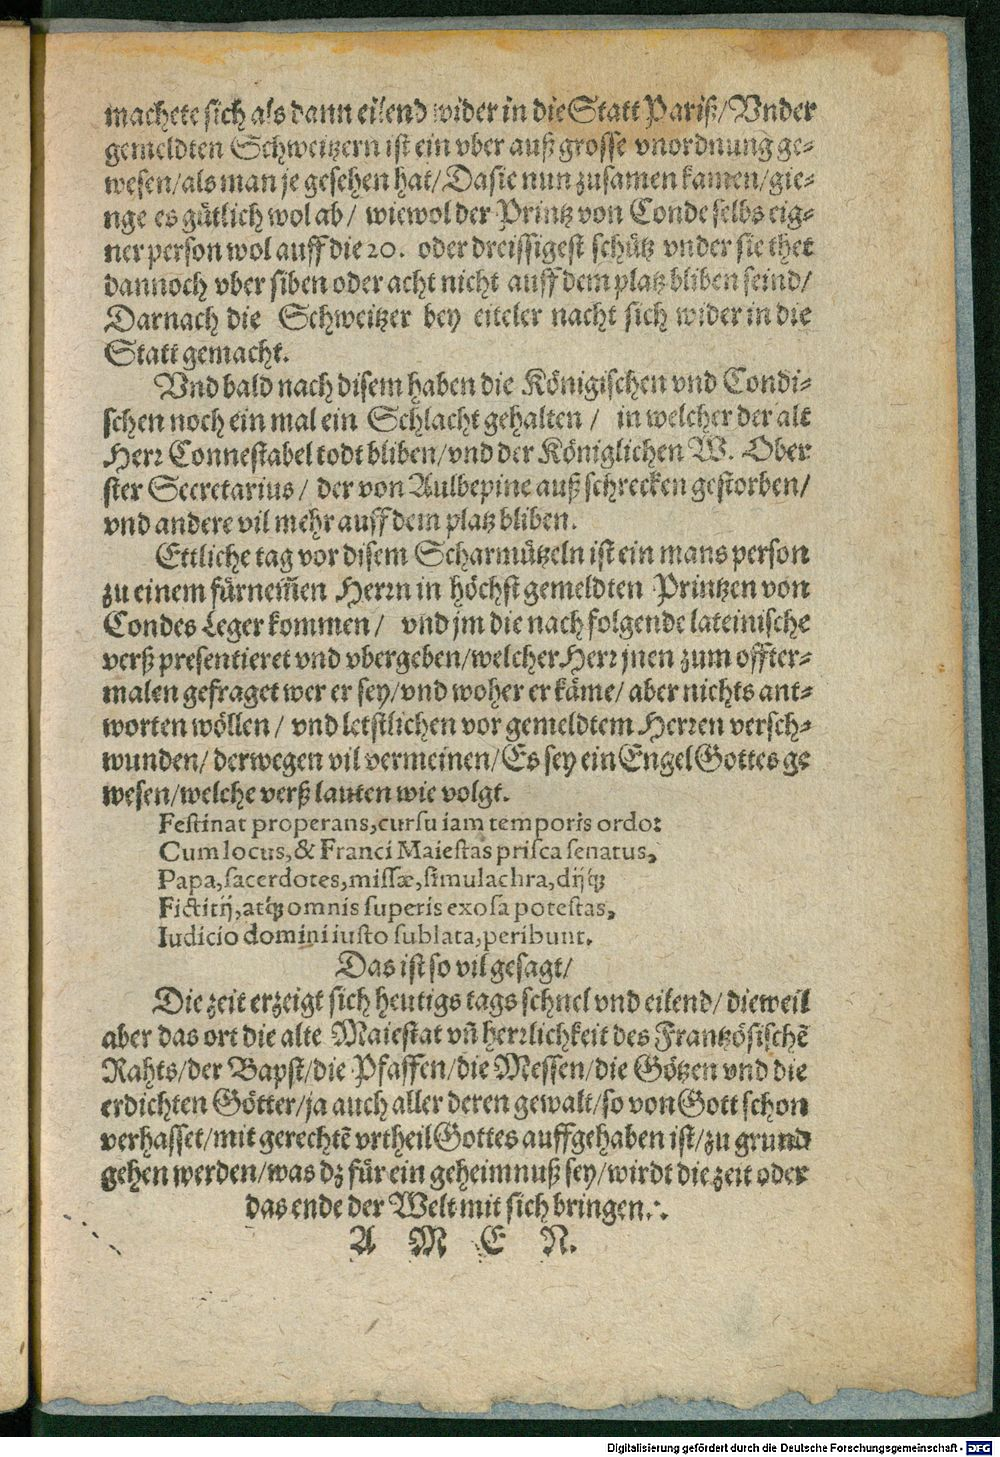 machete sich als dann eilend wider in die Statt Pariß/ Vnder
gemeldten Schweitzern ist ein vber auß grosse vnordnung ge-
wesen/ als man je gesehen hat/ Da sie nun zusamen kamen/ gie-
nge es gütlich wol ab/ wiewol der Printz von Conde selbs eig-
ner person wol auff die 20. oder dreissigest schütz vnder sie thet
dannoch vber siben oder acht nicht auff dem platz bliben seind/
Darnach die Schweitzer bey eiteler nacht sich wider in die
Statt gemacht.
Vnd bald nach disem haben die Königischen vnd Condi-
schen noch ein mal ein Schlacht gehalten/ in welcher der alt
Herr Connestabel todt bliben/ vnd der Königlichen W. Ober
ster Secretarius/ der von Aulbepine auß schrecken gestorben/
vnd andere vil mehr auff dem platz bliben.
Ettliche tag vor disem Scharmützeln ist ein mans person
zu einem fürnem̃en Herrn in höchst gemeldten Printzen von
Condes Leger kommen/ vnd jm die nach folgende lateinische
verß presentieret vnd vbergeben/ welcher Herr jnen zum offter-
malen gefraget wer er sey/ vnd woher er käme/ aber nichts ant-
worten wöllen/ vnd letstlichen vor gemeldtem Herren versch-
wunden/ derwegen vil vermeinen/ Es sey ein Engel Gottes ge
wesen/ welche verß lauten wie volgt.
Festinat properans, cursu iam temporis ordo:
Cum locus, & Franci Maiestas prisca senatus,
Papa, sacerdotes, missæ, simulachra, dijq́ꝫ
Fictitij, atq́ꝫ omnis superis exosa potestas,
Iudicio domini iusto sublata, peribunt.
Das ist so vil gesagt/
Die zeit erzeigt sich heutigs tags schnel vnd eilend/ dieweil
aber das ort die alte Maiestat vñ herrlichkeit des Frantzösischẽ
Rahts/ der Bapst/ die Pfaffen/ die Messen/ die Götzen vnd die
erdichten Götter/ ja auch aller deren gewalt/ so von Gott schon
verhasset/ mit gerechtẽ vrtheil Gottes auffgehaben ist/ zu grund
gehen werden/ was dz für ein geheimnuß sey/ wirdt die zeit oder
das ende der Welt mit sich bringen.∴
A M E N.
Digitalisierung gefördert durch die Deutsche Forschungsgemeinschaft - DFG